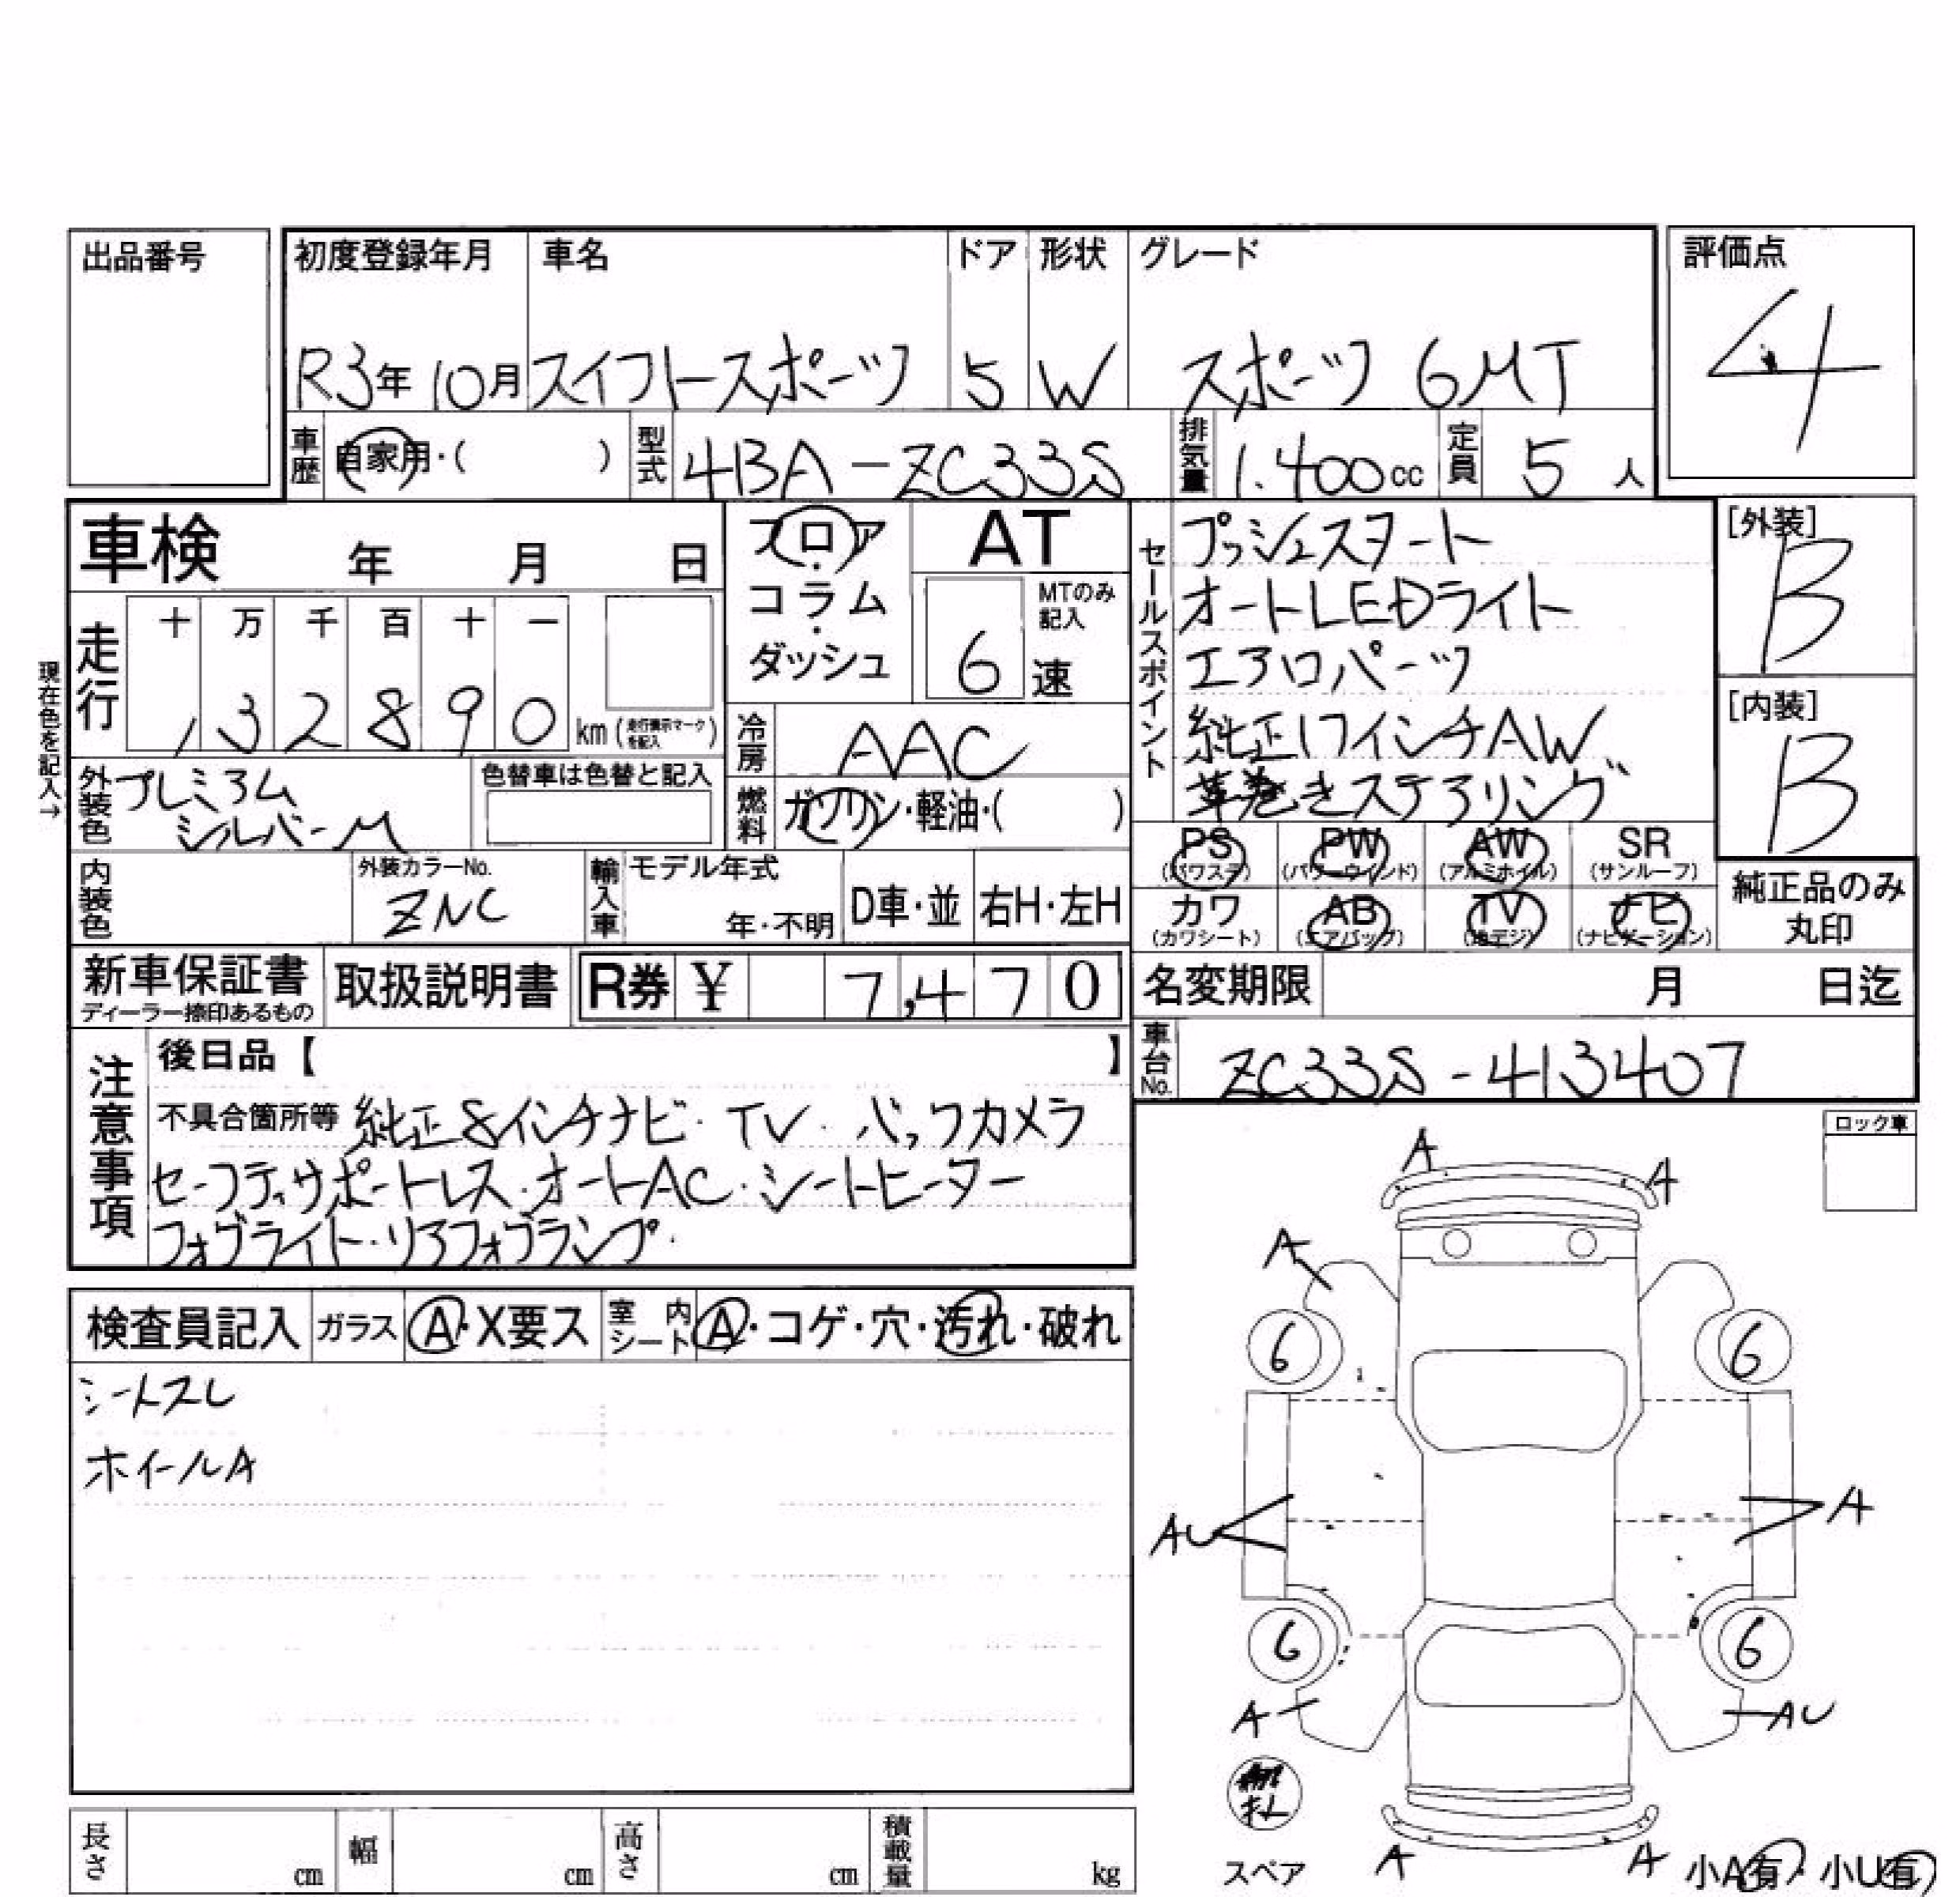 出品番号
初度登録年月 車名 ドア 形状 グレード
評価点
R3年10月 スイフトスポーツ 5 W スポーツ 6MT
4
車歴 自家用・( ) 型式 4BA-ZC33S 排気量 1.400cc 定員 5人
車検 年 月 日
フロア・コラム・ダッシュ
AT
MTのみ記入
6速
セールスポイント
プッシュスタート
オートLEDライト
エアロパーツ
純正17インチAW
革巻きステアリング
[外装]
B
[内装]
B
現在色を記入→
走行 十 万 千 百 十 一
, 3 2 8 9 0 km (走行表示マークを記入)
冷房 AAC
外装色 プレミアムシルバーM
色替車は色替と記入
燃料 ガソリン・軽油・( )
PS (パワステ) PW (パワーウインド) AW (アルミホイル) SR (サンルーフ)
カワ (カワシート) AB (エアバッグ) TV (地デジ) ナビ (ナビゲーション)
純正品のみ丸印
内装色 外装カラーNo. ZNC 輸入車 モデル年式 年・不明 D車・並 右H・左H
新車保証書 ディーラー捺印あるもの 取扱説明書 R券 ¥ 7,470
名変期限 月 日迄
車台No. ZC33S-413407
注意事項
後日品【 】
不具合箇所等 純正8インチナビ・TV・バックカメラ
セーフティサポートレス・オートAC・シートヒーター
フォグライト・リアフォグランプ・
ロック車
検査員記入 ガラス A・X要ス 室内シート A・コゲ・穴・汚れ・破れ
シートスレ
ホイールA
A A
A
6 6
AU A
6 6
A AU
スペア
A A
小A有・小U有
長さ cm 幅 cm 高さ cm 積載量 kg